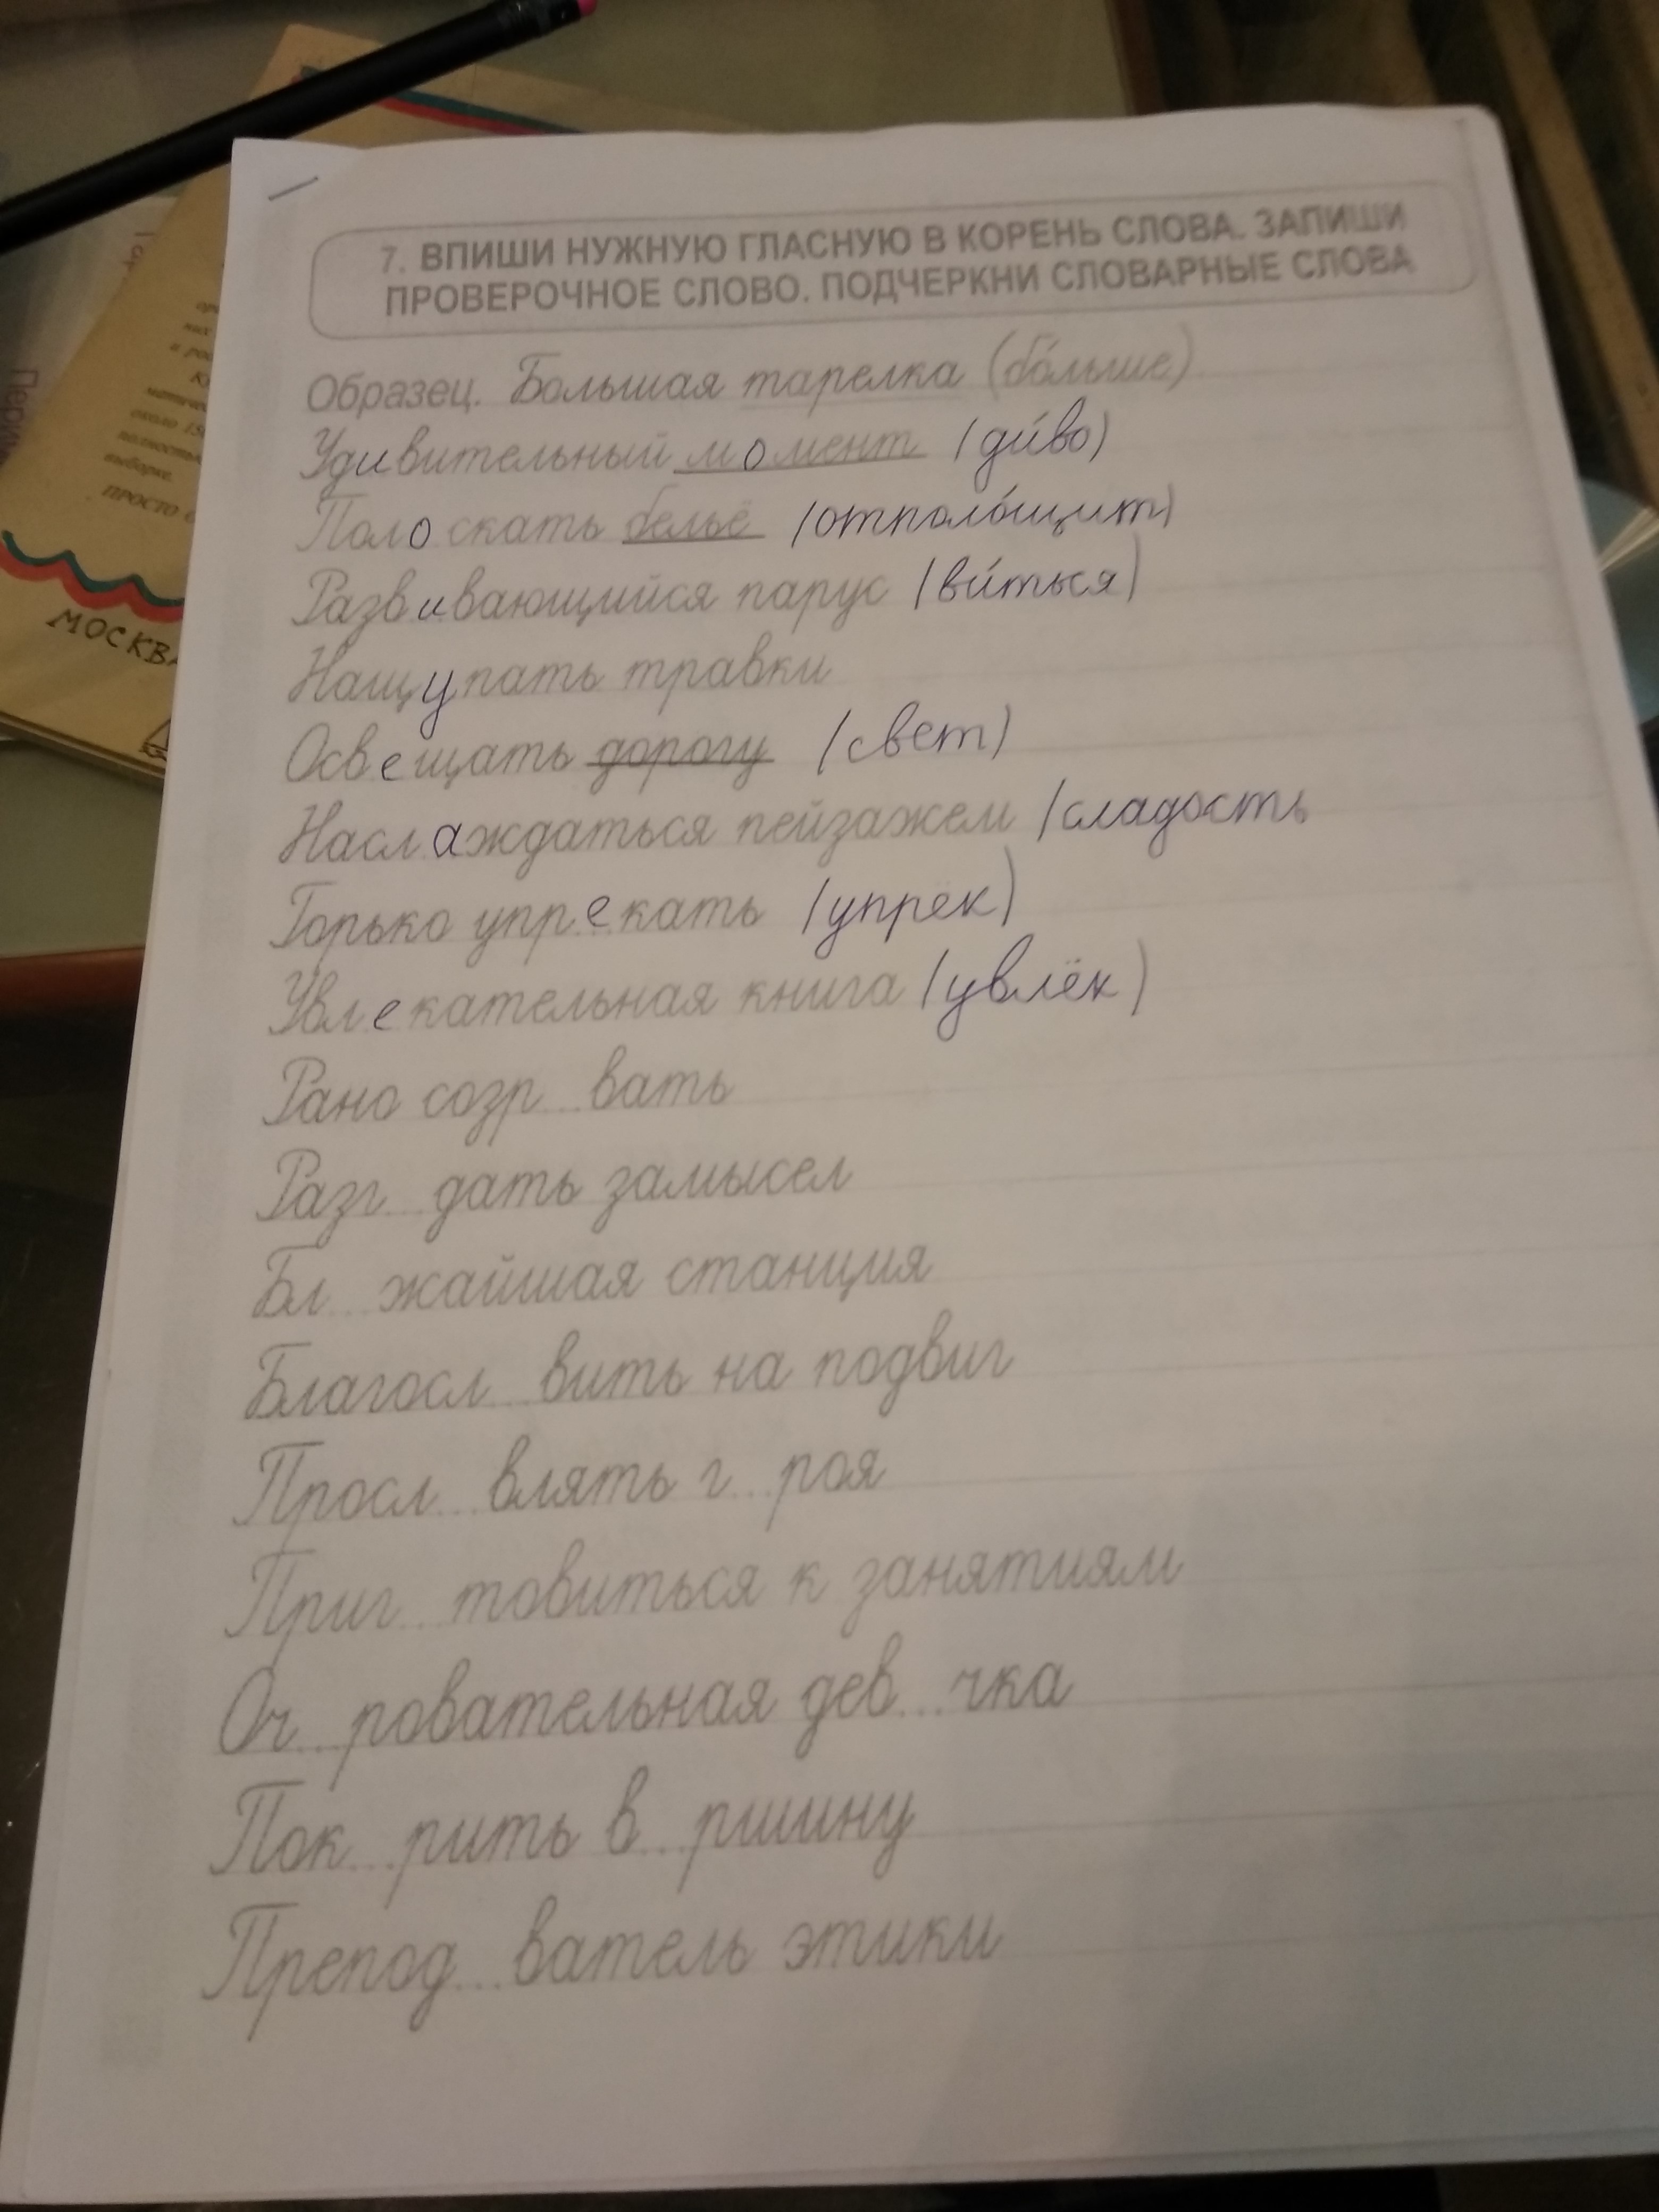 7. ВПИШИ НУЖНУЮ ГЛАСНУЮ В КОРЕНЬ СЛОВА. ЗАПИШИ
ПРОВЕРОЧНОЕ СЛОВО. ПОДЧЕРКНИ СЛОВАРНЫЕ СЛОВА
Образец. Большая тарелка (бо́льше)
Удивительный момент (ди́во)
Полоскать бельё (отполо́щит)
Развивающийся парус (ви́ться)
Нащупать травки
Освещать дорогу (свет)
Наслаждаться пейзажем (сладость
Горько упрекать (упрёк)
Увлекательная книга (увлёк)
Рано созр...вать
Разг...дать замысел
Бл...жайшая станция
Благосл...вить на подвиг
Просл...влять г...роя
Приг...товиться к занятиям
Оч...ровательная дев...чка
Пок...рить в...ршину
Препод...ватель этики
МОСКВА
ПРОСТО
около
выборке.